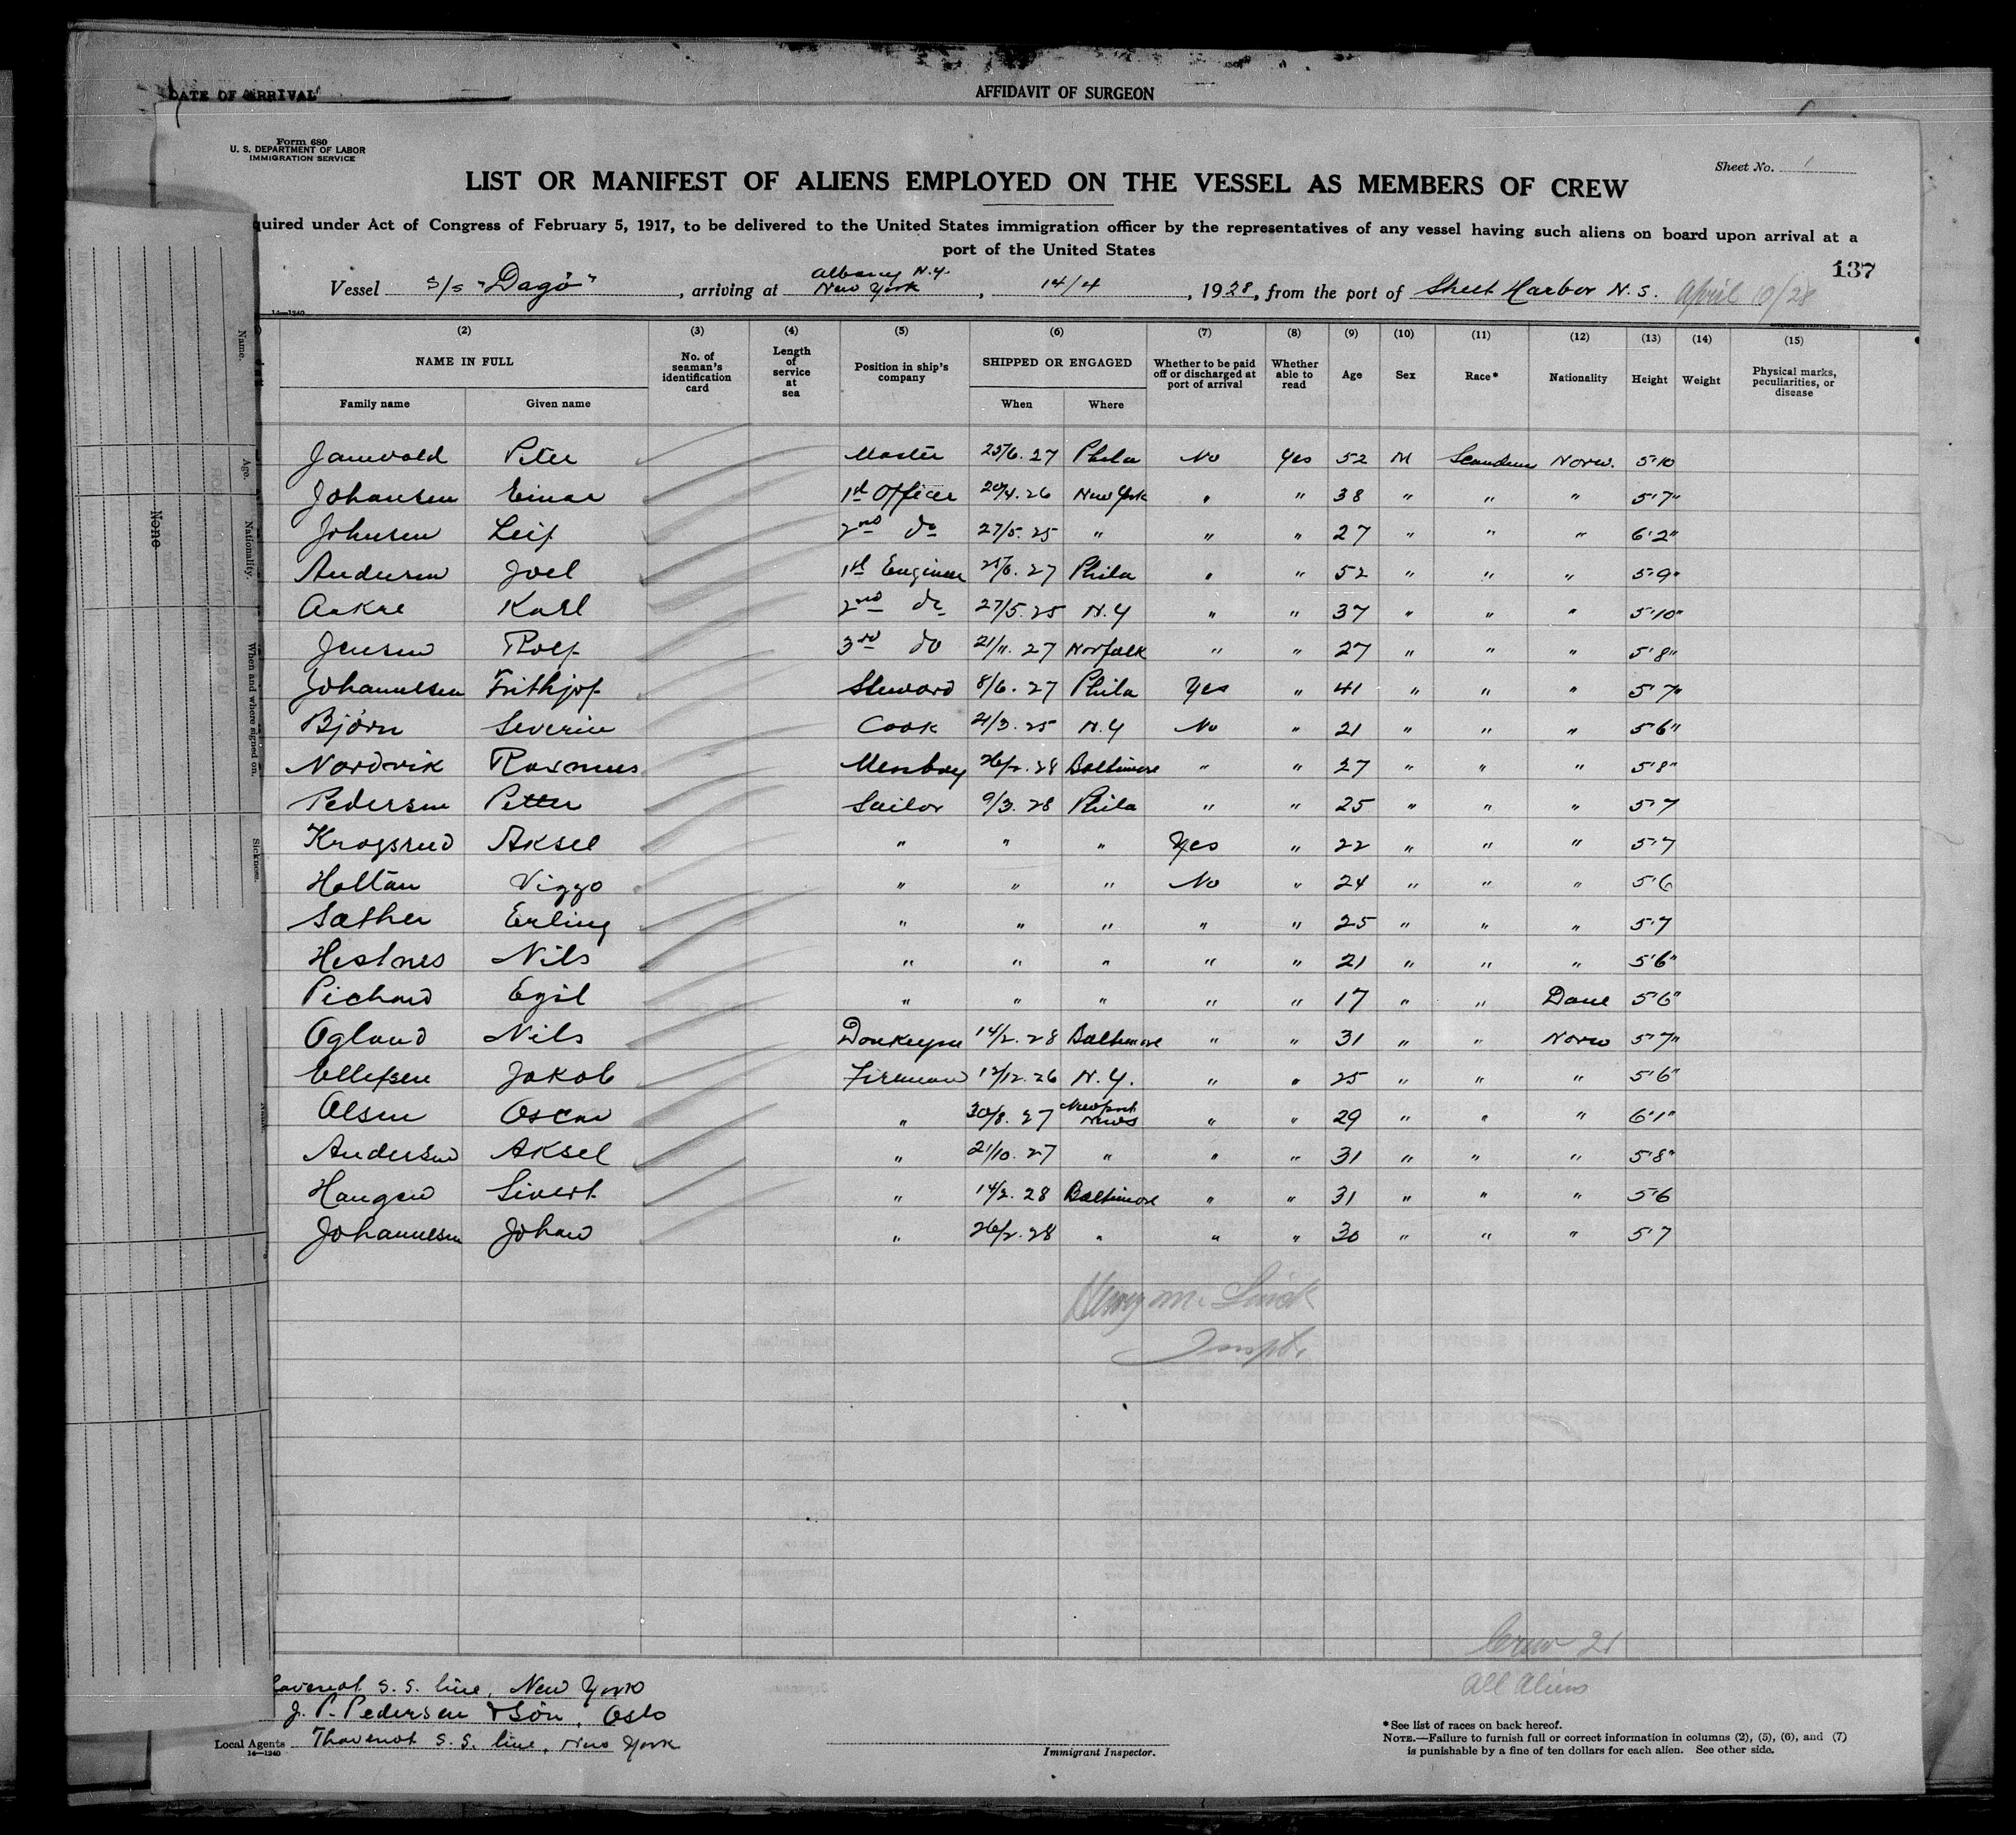 DATE OF ARRIVAL
AFFIDAVIT OF SURGEON
Form 680
U. S. DEPARTMENT OF LABOR
IMMIGRATION SERVICE
Sheet No. 1
LIST OR MANIFEST OF ALIENS EMPLOYED ON THE VESSEL AS MEMBERS OF CREW
quired under Act of Congress of February 5, 1917, to be delivered to the United States immigration officer by the representatives of any vessel having such aliens on board upon arrival at a
port of the United States
137
Albany N.Y.
Vessel S/S "Dagö", arriving at New York, 14/4, 1928, from the port of Sheet Harbor N.S. April 10/28
14—1240
(2) (3) (4) (5) (6) (7) (8) (9) (10) (11) (12) (13) (14) (15)
NAME IN FULL No. of seaman's identification card Length of service at sea Position in ship's company SHIPPED OR ENGAGED Whether to be paid off or discharged at port of arrival Whether able to read Age Sex Race* Nationality Height Weight Physical marks, peculiarities, or disease
Family name Given name When Where
Peter Master 25/6. 27 Phila No Yes 52 M Norw. 5'10
Johansen Einar 1st Officer 20/4. 26 New York " " 38 " " " 5'7"
Johnsen Leif 2nd do 27/5. 25 " " " 27 " " " 6'2"
Andersen Joel 1st Engineer 25/6. 27 Phila " " 52 " " " 5'9"
Aakre Karl 2nd do 27/5. 25 N.Y " " 37 " " " 5'10"
Jensen Rolf 3rd do 21/11. 27 Norfolk " " 27 " " " 5'8"
Johannesen Frithjof Steward 8/6. 27 Phila Yes " 41 " " " 5'7"
Bjørn Severin Cook 21/3. 25 N.Y No " 21 " " " 5'6"
Nordvik Rasmus Messboy 26/2. 28 Baltimore " " 27 " " " 5'8"
Pedersen Petter Sailor 9/3. 28 Phila " " 25 " " " 5'7
Krogsrud Aksel " " " Yes " 22 " " " 5'7
Holtan Viggo " " " No " 24 " " " 5'6
Sather Erling " " " " " 25 " " " 5'7
Hestnes Nils " " " " " 21 " " " 5'6"
Pichard Egil " " " " " 17 " " Dane 5'6"
Ogland Nils Donkeyman 14/2. 28 Baltimore " " 31 " " Norw 5'7"
Ellefsen Jakob Fireman 12/12. 26 N.Y. " " 25 " " " 5'6"
Olsen Oscar " 30/8. 27 Newport News " " 29 " " " 6'1"
Andersen Aksel " 21/10. 27 " " " 31 " " " 5'8"
Haugen Sivert " 14/2. 28 Baltimore " " 31 " " " 5'6
Johannesen Johan " 26/2. 28 " " " 30 " " " 5'7
Henry M.
Inspt.
Crew 21
All Aliens
S. S. line, New York
J. P. Pedersen & Sön, Oslo
Local Agents Thovenot S. S. line, New York
14—1240
Immigrant Inspector.
* See list of races on back hereof.
NOTE.—Failure to furnish full or correct information in columns (2), (5), (6), and (7)
is punishable by a fine of ten dollars for each alien. See other side.
Name.
Age.
Nationality.
When and where signed on.
Sickness.
None